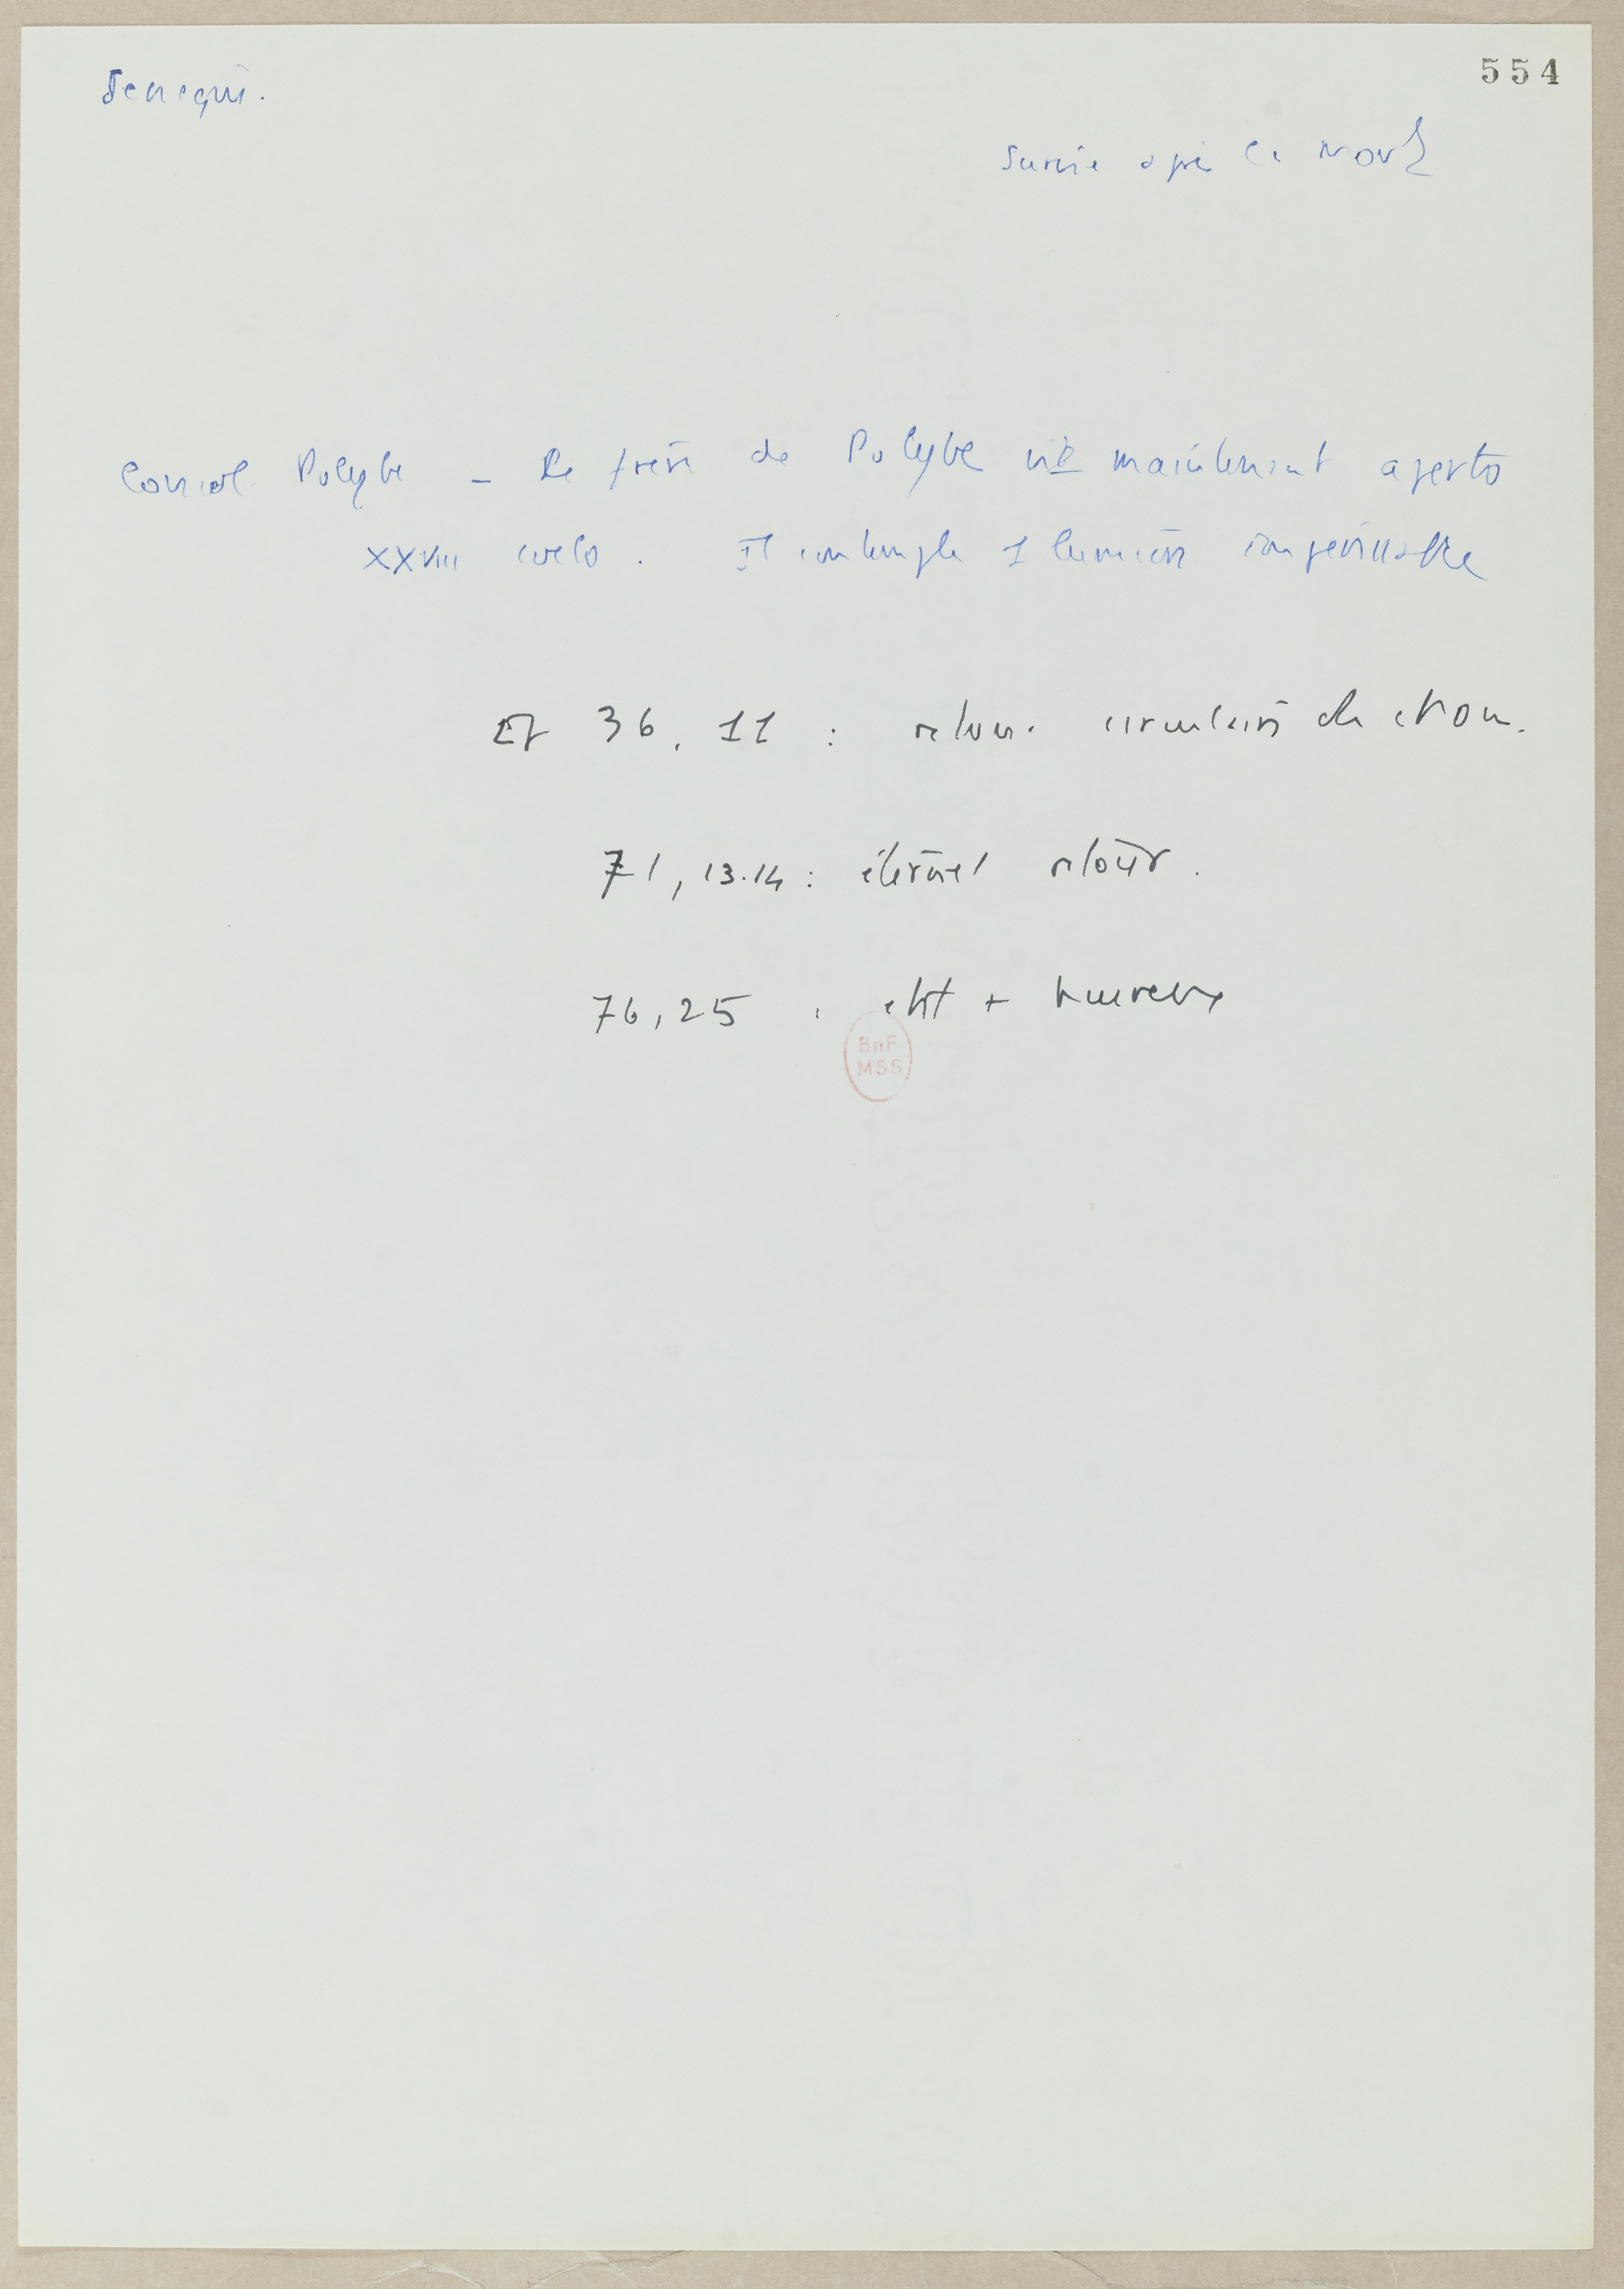 554
Sénèque.
Survie après la mort
Consol. Polybe – Le frère de Polybe vit maintenant aperto
XXVIII coelo. Il contemple 1 lumière
Ep 36, 11 : retour circulaire des choses.
71, 13.14 : éternel retour.
76, 25 : état + heureux
BnF
MSS